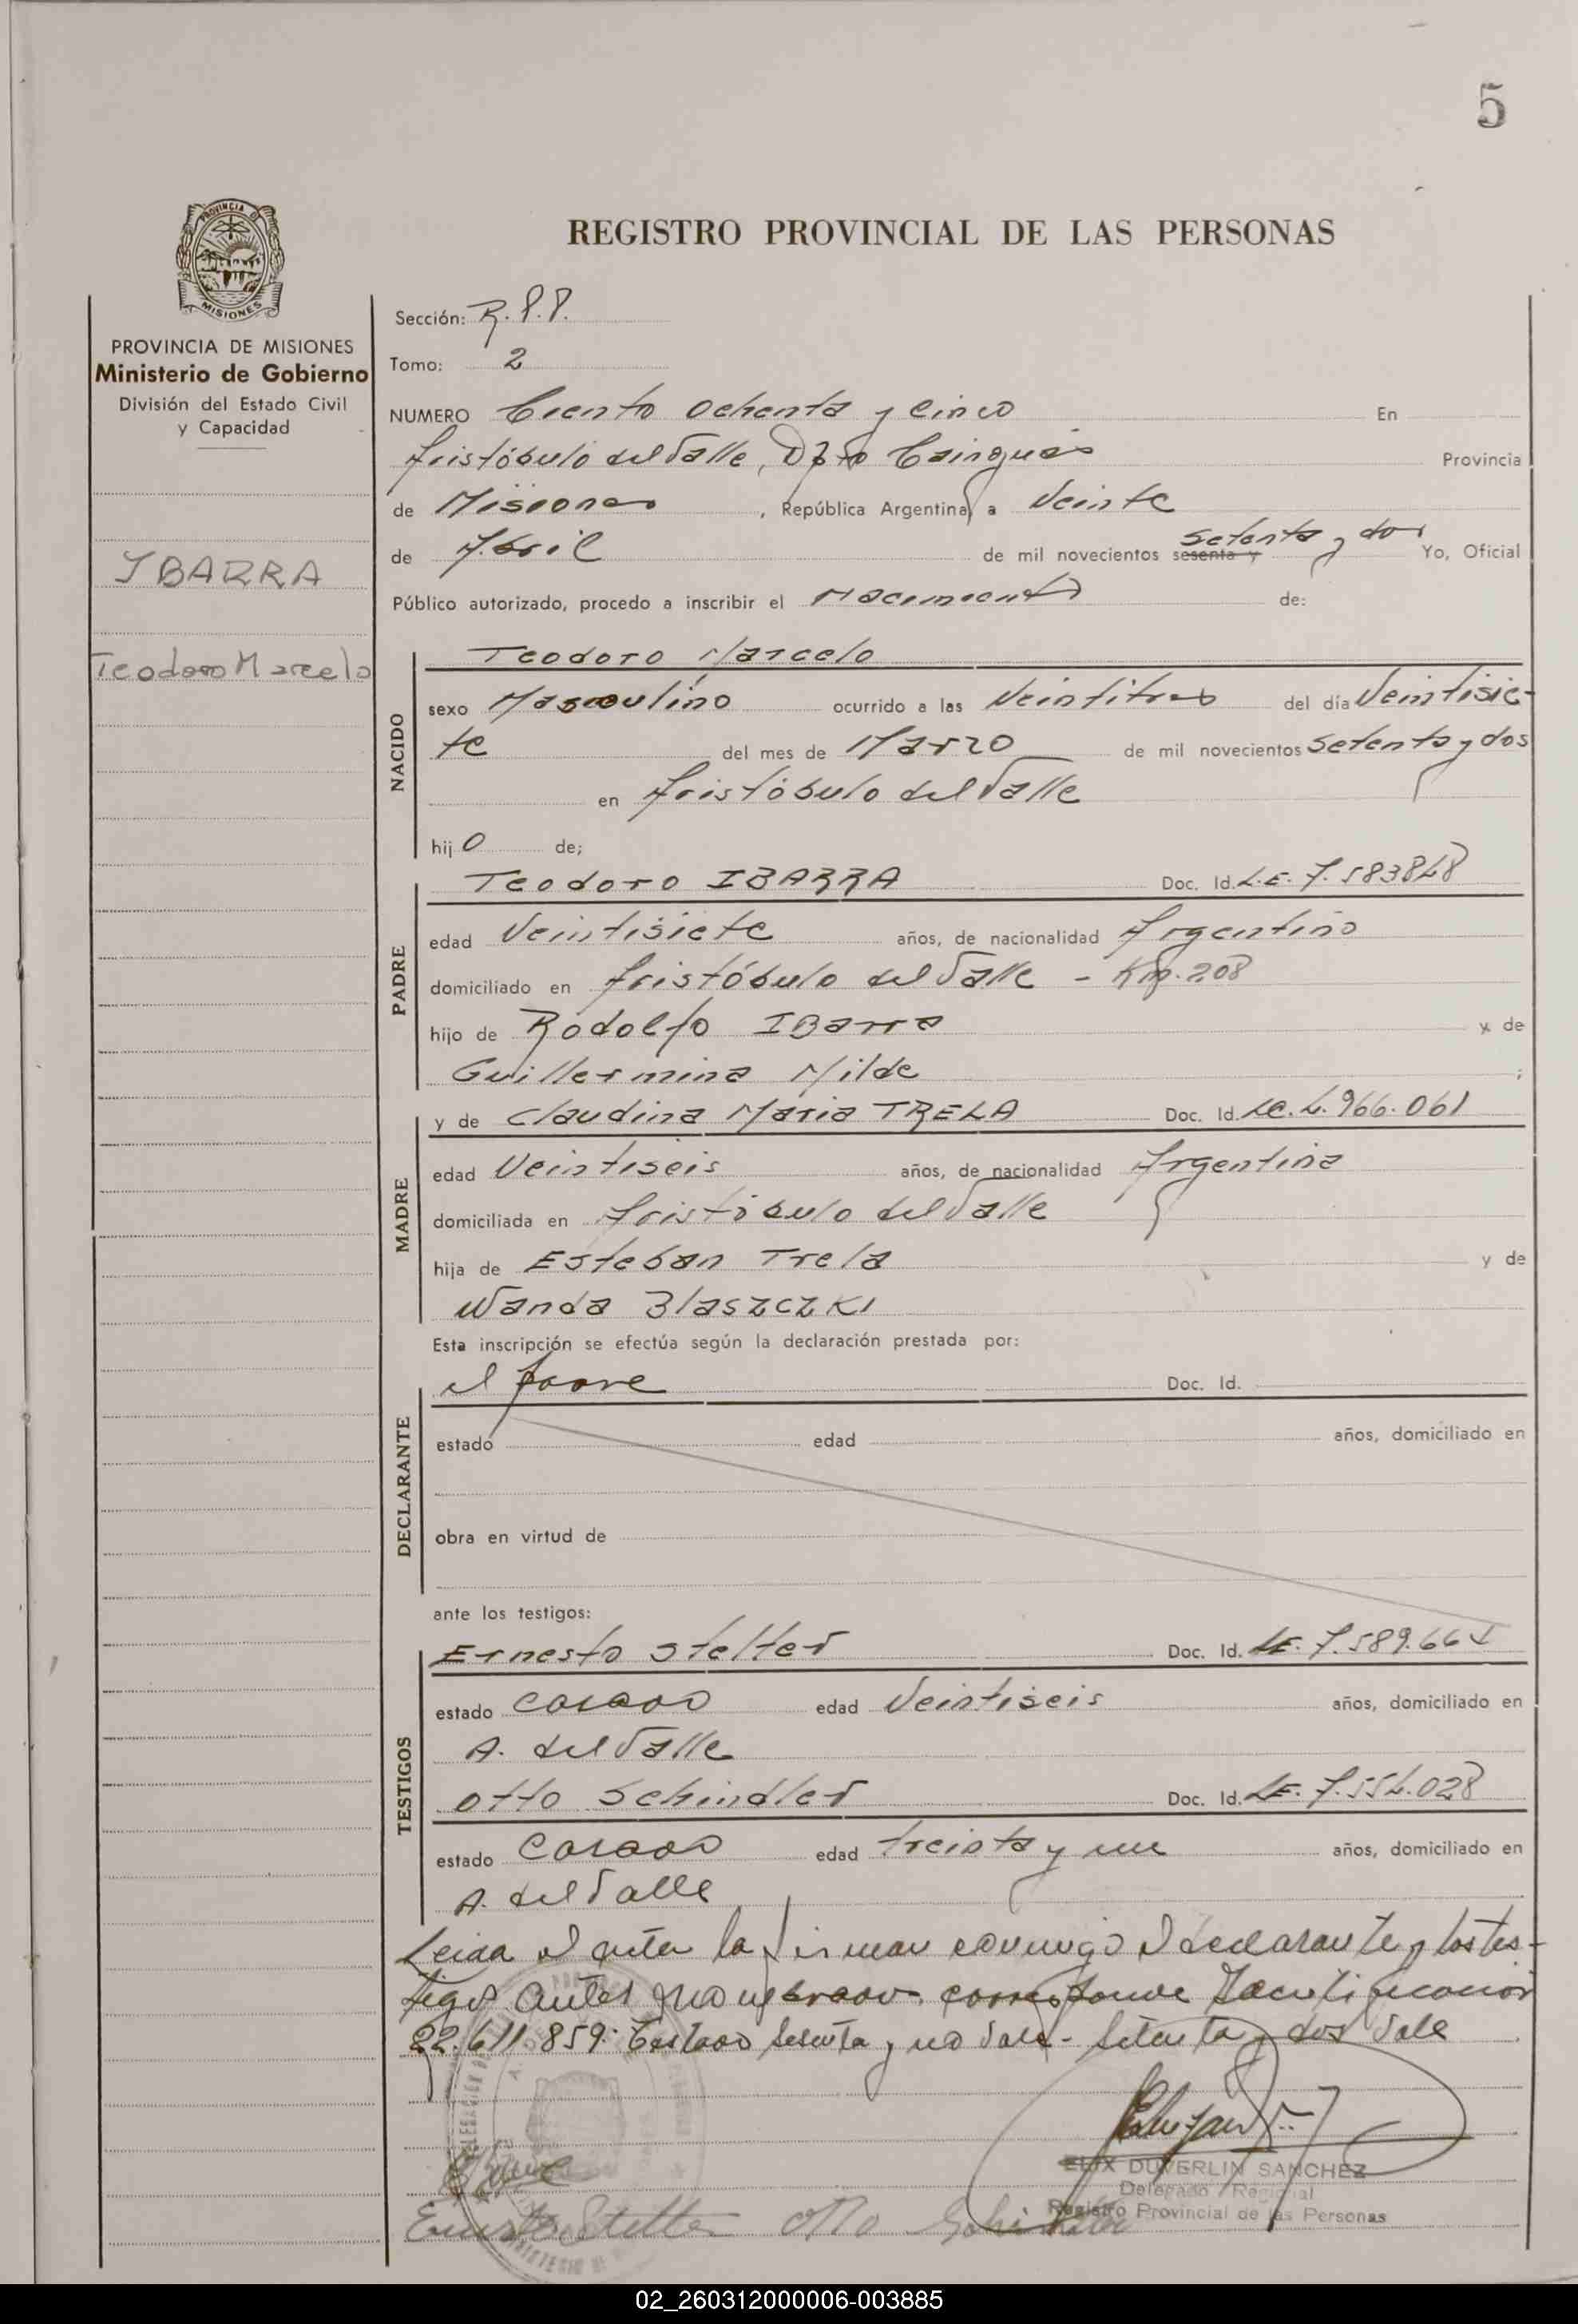 5
REGISTRO PROVINCIAL DE LAS PERSONAS
PROVINCIA DE
MISIONES
PROVINCIA DE MISIONES
Ministerio de Gobierno
División del Estado Civil
y Capacidad
IBARRA
Teodoro Marcelo
Sección: R.P.P.
Tomo: 2
NUMERO Ciento ochenta y cinco En
Aristóbulo del Valle, Dpto Cainguás Provincia
de Misiones, República Argentina, a Veinte
de Abril de mil novecientos sesenta y setenta y dos Yo, Oficial
Público autorizado, procedo a inscribir el nacimiento de:
NACIDO
Teodoro Marcelo
sexo Masculino ocurrido a las Veintitres del día Veintisie-
te del mes de Marzo de mil novecientos setenta y dos
en Aristóbulo del Valle
hijo de;
PADRE
Teodoro IBARRA Doc. Id. L.E. 7.583848
edad Veintisiete años, de nacionalidad Argentino
domiciliado en Aristóbulo del Valle - Km. 208
hijo de Rodolfo IBarra y de
Guillermina Milde ;
MADRE
y de Claudina Maria TRELA Doc. Id. LC. 4.966.061
edad Veintiseis años, de nacionalidad Argentina
domiciliada en Aristóbulo del Valle
hija de Esteban Trela y de
Wanda BlaszczKi
Esta inscripción se efectúa según la declaración prestada por:
DECLARANTE
el padre Doc. Id.
estado edad años, domiciliado en
obra en virtud de
ante los testigos:
TESTIGOS
Ernesto Stelter Doc. Id. LE. 7.589.66
estado casado edad Veintiseis años, domiciliado en
A. del Valle
Otto Schindler Doc. Id. LE. 7.554.028
estado casado edad treinta y un años, domiciliado en
A. del Valle
Leida el acta la firman conmigo el declarante y los tes-
tigos antes nombrados. corresponde Identificación
22.611.859: Testado sesenta y no vale - setenta y dos vale
ELIX DUVERLIN SANCHEZ
Delegado Regional
Registro Provincial de las Personas
Ernesto Stelter Otto Schindler
02_260312000006-003885